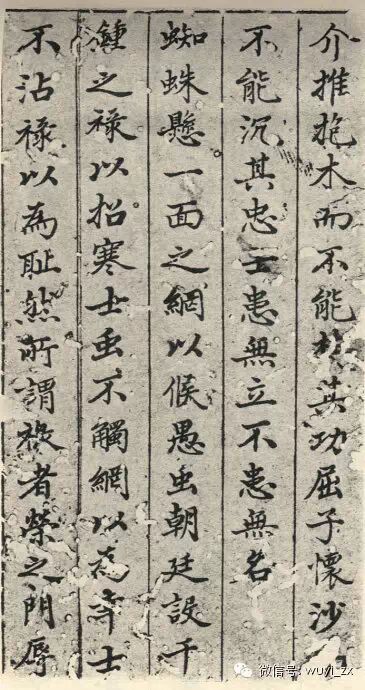 介推抱木而不能朽其功屈子懷沙
不能沉其忠士患無立不患無名
蜘蛛懸一面之網以候愚虫朝廷設千
鍾之祿以招寒士虫不觸網以為幸士
不沾祿以為耻然所謂祿者榮之門辱
微信号: wuyi_zx